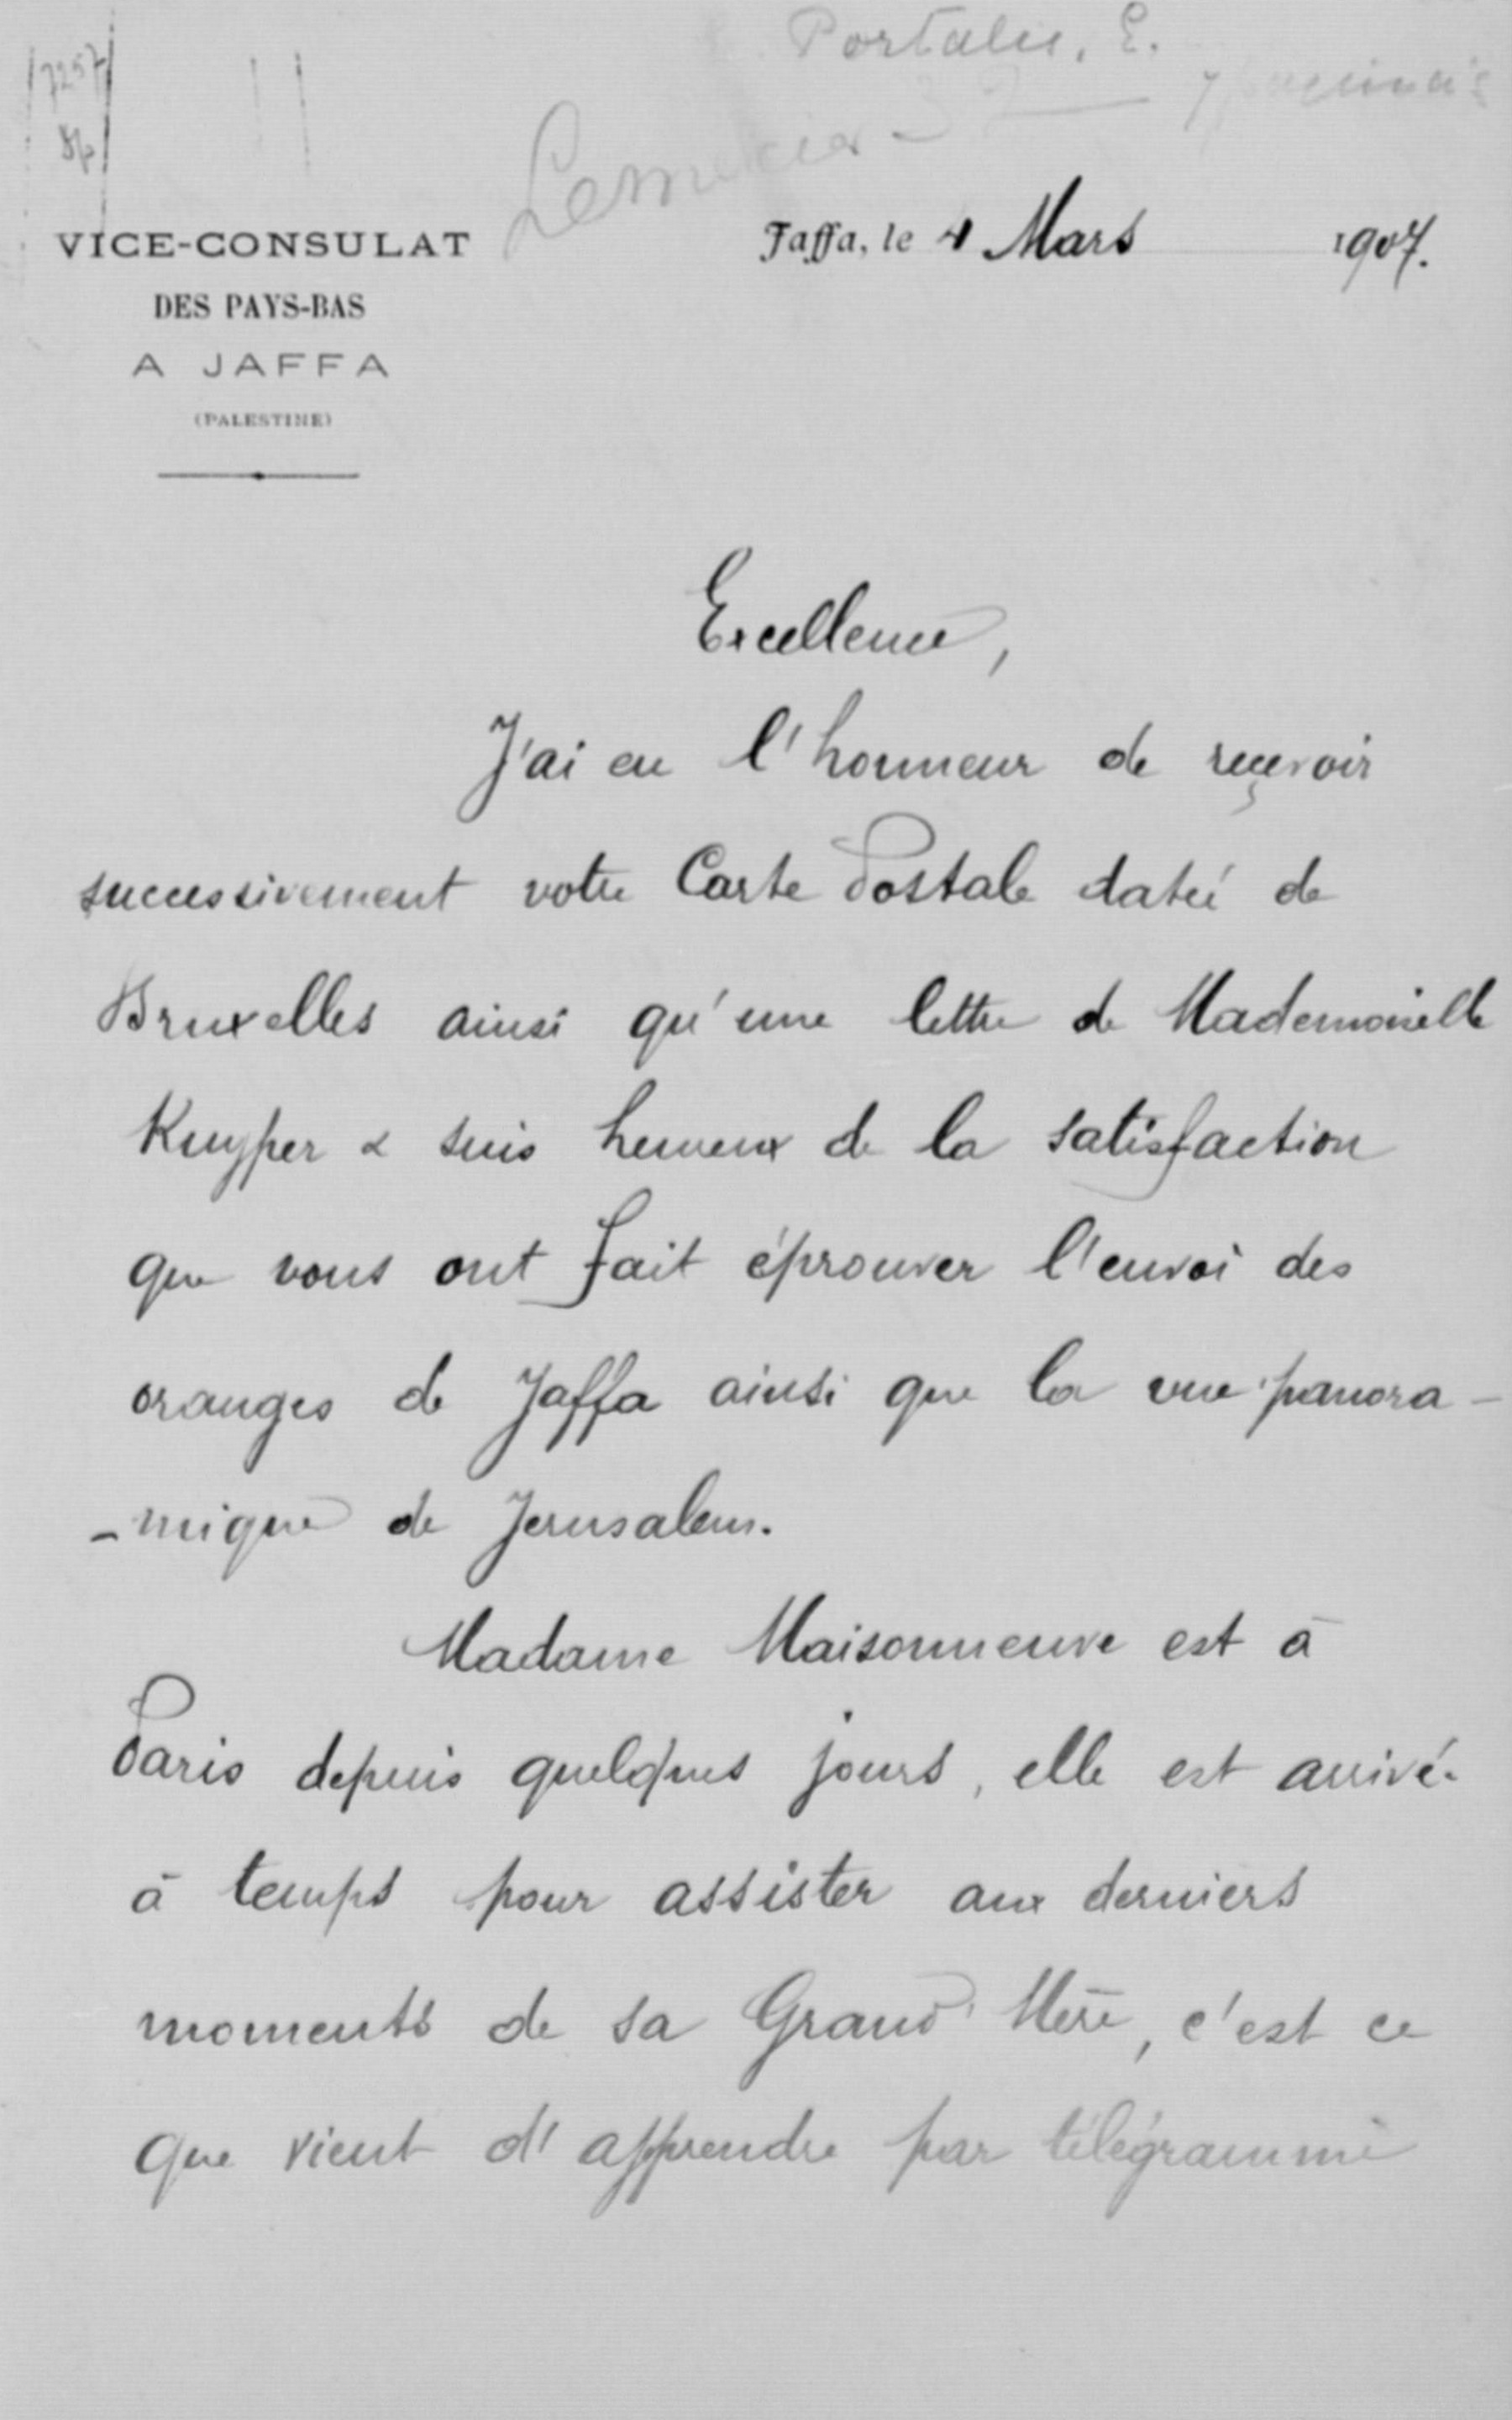 Portalis, E.
7257
VICE-CONSULAT
DES PAYS-BAS
A JAFFA
(PALESTINE)
Jaffa, le 4 Mars 1907.
Excellence,
J'ai eu l'honneur de reçevoir
successivement votre Carte Postale datée de
Bruxelles ainsi qu'une lettre de Mademoiselle
Kuyper & suis heureux de la satisfaction
que vous ont fait éprouver l'envoi des
oranges de Jaffa ainsi que la vue panora-
-mique de Jerusalem.
Madame Maisonneuve est à
Paris depuis quelques jours, elle est arrivée
à temps pour assister aux derniers
moments de sa Grand' Mère, c'est ce
que vient d'apprendre par télégramme